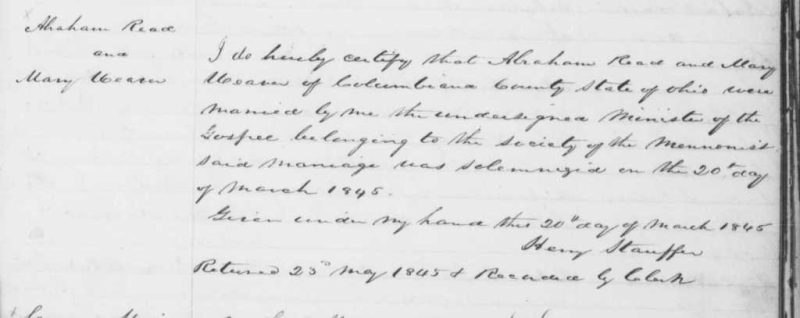 Abraham Read
and
Mary Weaver
I do hereby certify that Abraham Read and Mary
Weaver of Columbiana County State of Ohio were
married by me the undersigned Minister of the
Gospel belonging to the Society of the Mennonist
said marriage was solemnized on the 20th day
of March 1845.
Given under my hand this 20th day of March 1845
Henry Stauffer
Returned 23d May 1845 & Recorded by Clerk